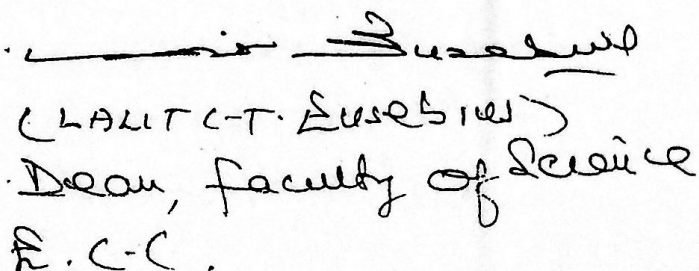 Eusebius
(LALIT C.T. Eusebius)
Dean, faculty of Science
E.C.C.